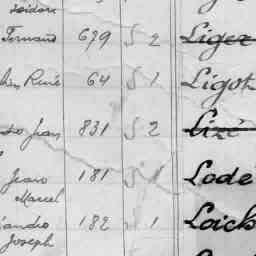 Isidore
Fernand 679 S 2 Liger
René 64 S 1 Ligot
Jean 831 S 2 Lizé
Jean 181 S 1 Lodé
Marcel
182 S 1 Loick
Joseph